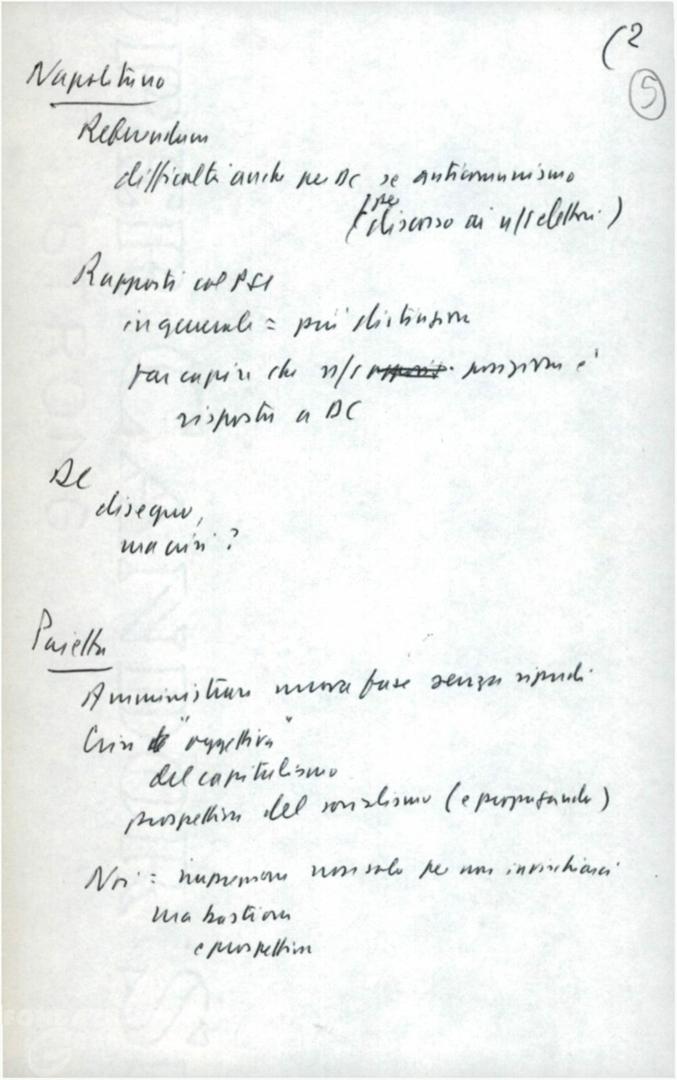 (2
5
Napolitano
Referendum
difficoltà anche per DC se anticomunismo
per
(discorso ai n/s elettori)
Rapporti col PSI
in generale = più distensione
Far capire che n/s posizione è
risposta a DC
DC
disegno,
ma crisi?
Pajetta
Amministrare nuova fase senza ripudi
Crisi "oggettiva"
del capitalismo
prospettiva del socialismo (e propaganda)
Noi = non solo per non invischiarci
ma
e prospettiva